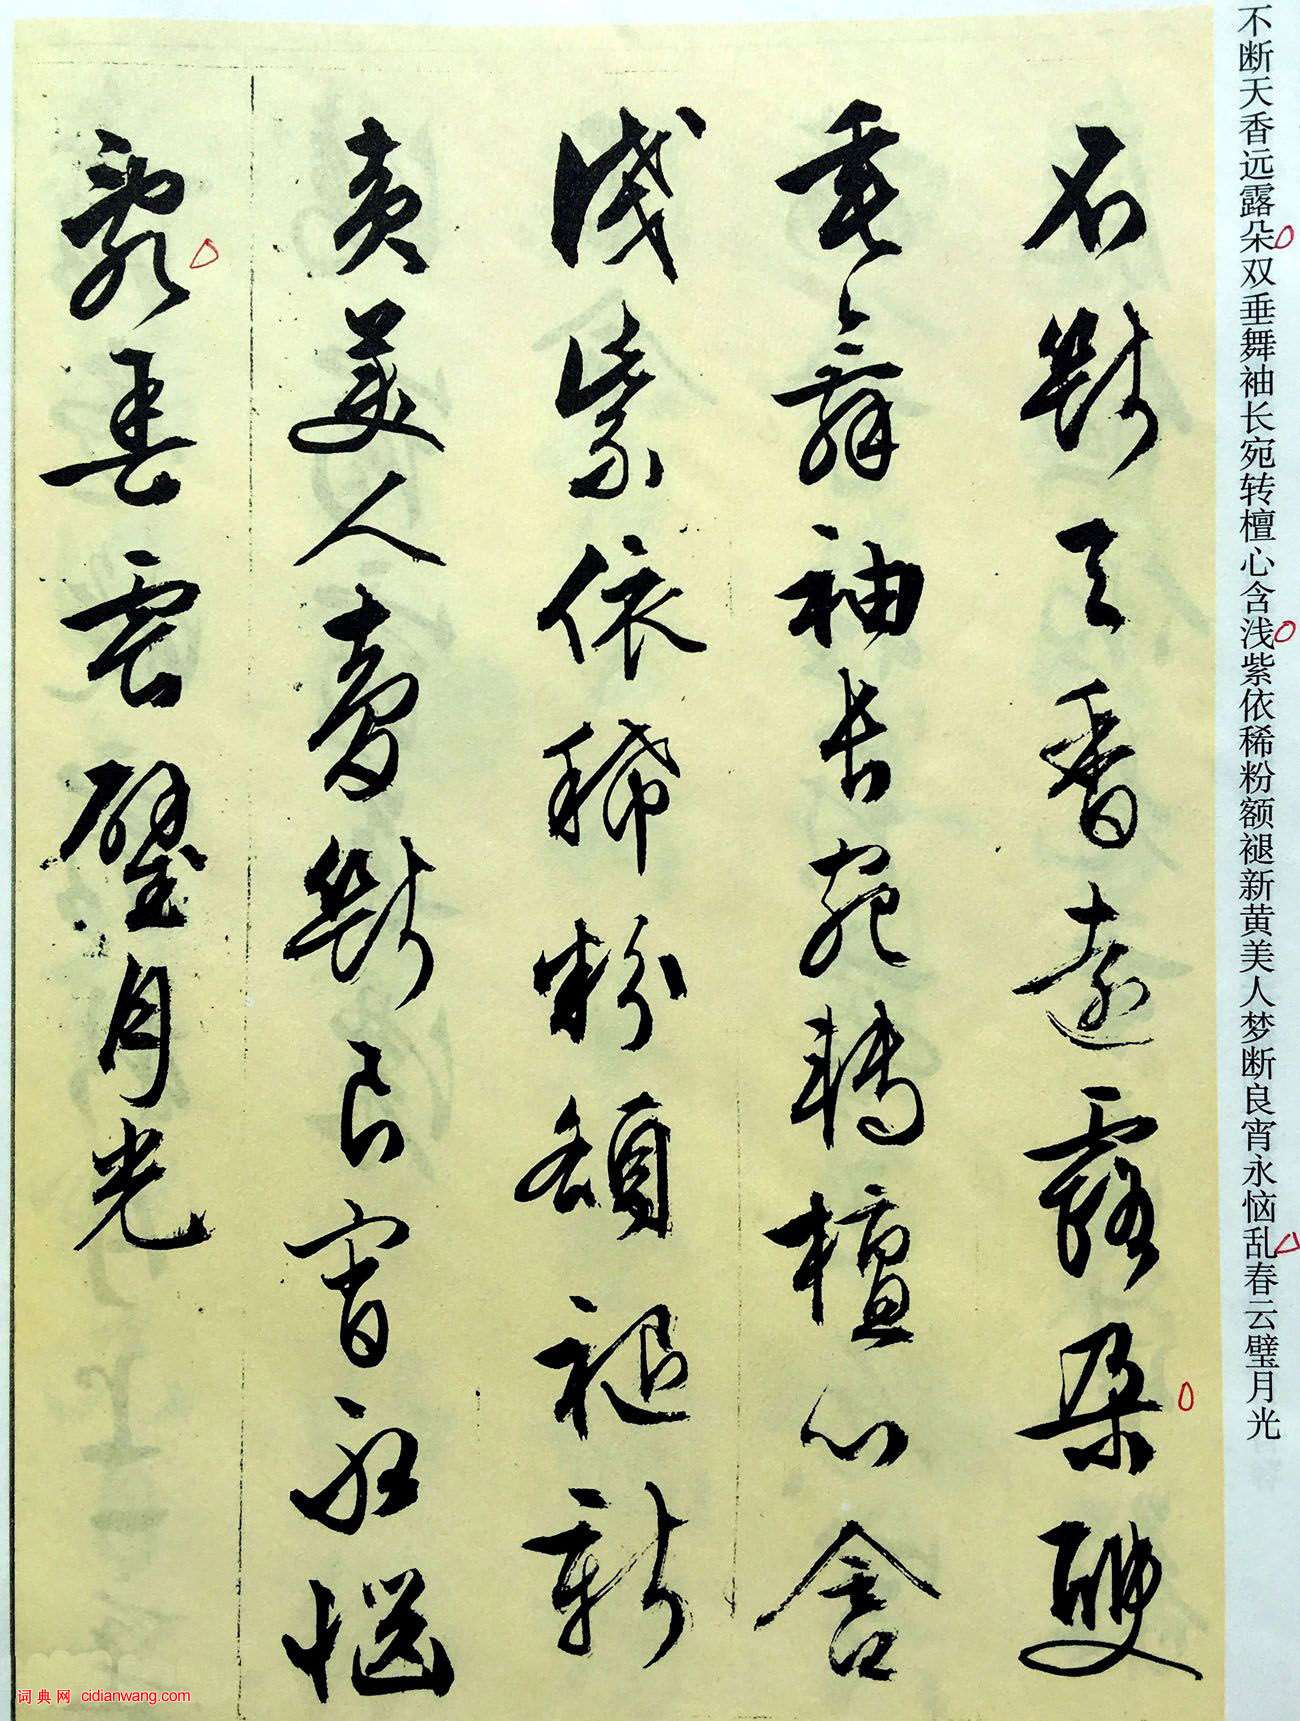 不断天香远露朵双垂舞袖长宛转檀心含浅紫依稀粉额褪新黄美人梦断良宵永恼乱春云璧月光
不斷天香遠露朵雙
垂舞袖長宛轉檀心含
淺紫依稀粉額褪新
黃美人夢斷良宵永惱
亂春雲璧月光
词典网 cidianwang.com